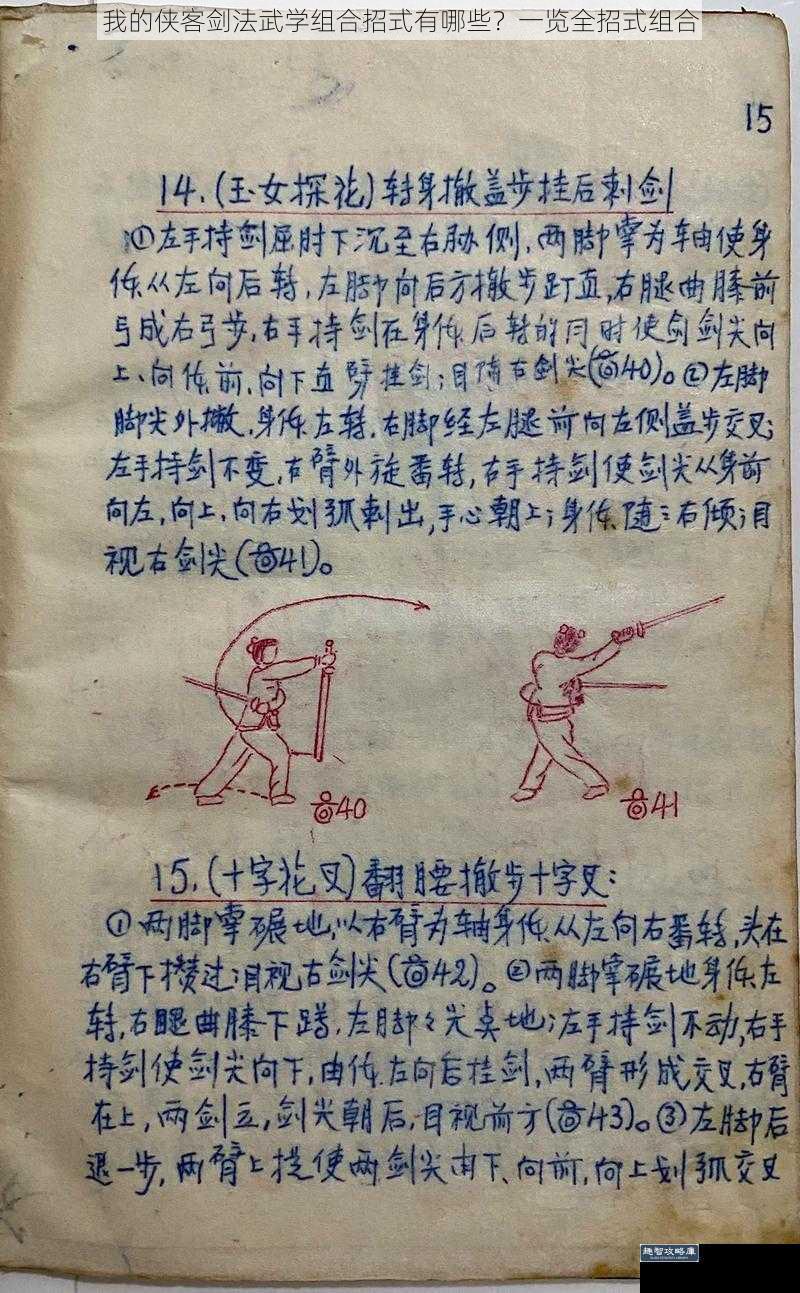 我的侠客剑法武学组合招式有哪些？一览全招式组合
15
14.(玉女探花)转身撤盖步挂后刺剑
①左手持剑屈肘下沉至右胁侧，两脚掌为轴由使身
体从左向后转，左脚向后方撤步蹬直，右腿曲膝前
弓成右弓步，右手持剑在身体后转的同时使剑剑尖向
上、向体前、向下直劈挂剑；目随右剑尖(图40)。②左脚
脚尖外撇，身体左转，右脚经左腿前向左侧盖步交叉；
左手持剑不变，右臂外旋番转，右手持剑使剑尖从身前
向左，向上，向右划弧刺出，手心朝上；身体随之右倾；目
视右剑尖(图41)。
图40
图41
15.(十字花叉)翻腰撤步十字叉：
①两脚掌碾地，以右臂为轴身体从左向右番转，头在
右臂下攒过；目视右剑尖(图42)。②两脚掌碾地身体左
转，右腿曲膝下蹲，左脚々尖点地；左手持剑不动，右手
持剑使剑尖向下，由体左向后挂剑，两臂形成交叉，右臂
在上，两剑立，剑尖朝后，目视前方(图43)。③左脚后
退一步，两臂上提使两剑尖由下、向前，向上划弧交叉
趣智攻略库